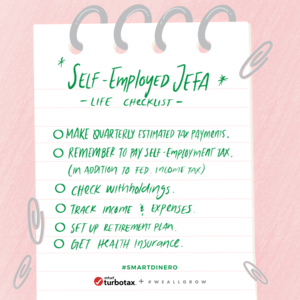 * SELF-EMPLOYED JEFA *
- LIFE CHECKLIST -
MAKE QUARTERLY ESTIMATED TAX PAYMENTS.
REMEMBER TO PAY SELF-EMPLOYMENT TAX.
(IN ADDITION TO FED. INCOME TAX)
CHECK WITHHOLDINGS.
TRACK INCOME & EXPENSES.
SET UP RETIREMENT PLAN.
GET HEALTH INSURANCE.
#SMARTDINERO
intuit turbotax. + #WEALLGROW